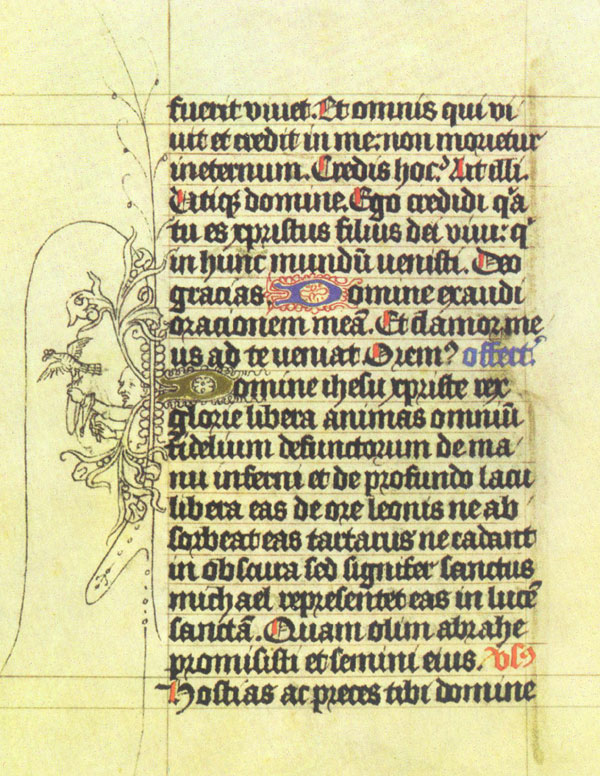 fuerit vivet. Et omnis qui vi
uit et credit in me: non morietur
ineternum. Credis hoc? Ait illi.
Utiq3 domine. Ego credidi q'a
tu es xpristus filius dei vivi: q'
in hunc mundū uenisti. Deo
gracias. Domine exaudi
orationem meā. Et clamor me
us ad te ueniat Orem9 offert'
Domine ihesu xpriste rex
glorie libera animas omniū
fidelium defunctorum de ma
nu inferni et de profundo lacu
libera eas de ore leonis ne ab
sorbeat eas tartarus ne cadant
in obscura sed signifer sanctus
michael representet eas in lucē
sanctā. Quam olim abrahe
promisisti et semini eius. vs9
Hostias ac preces tibi domine